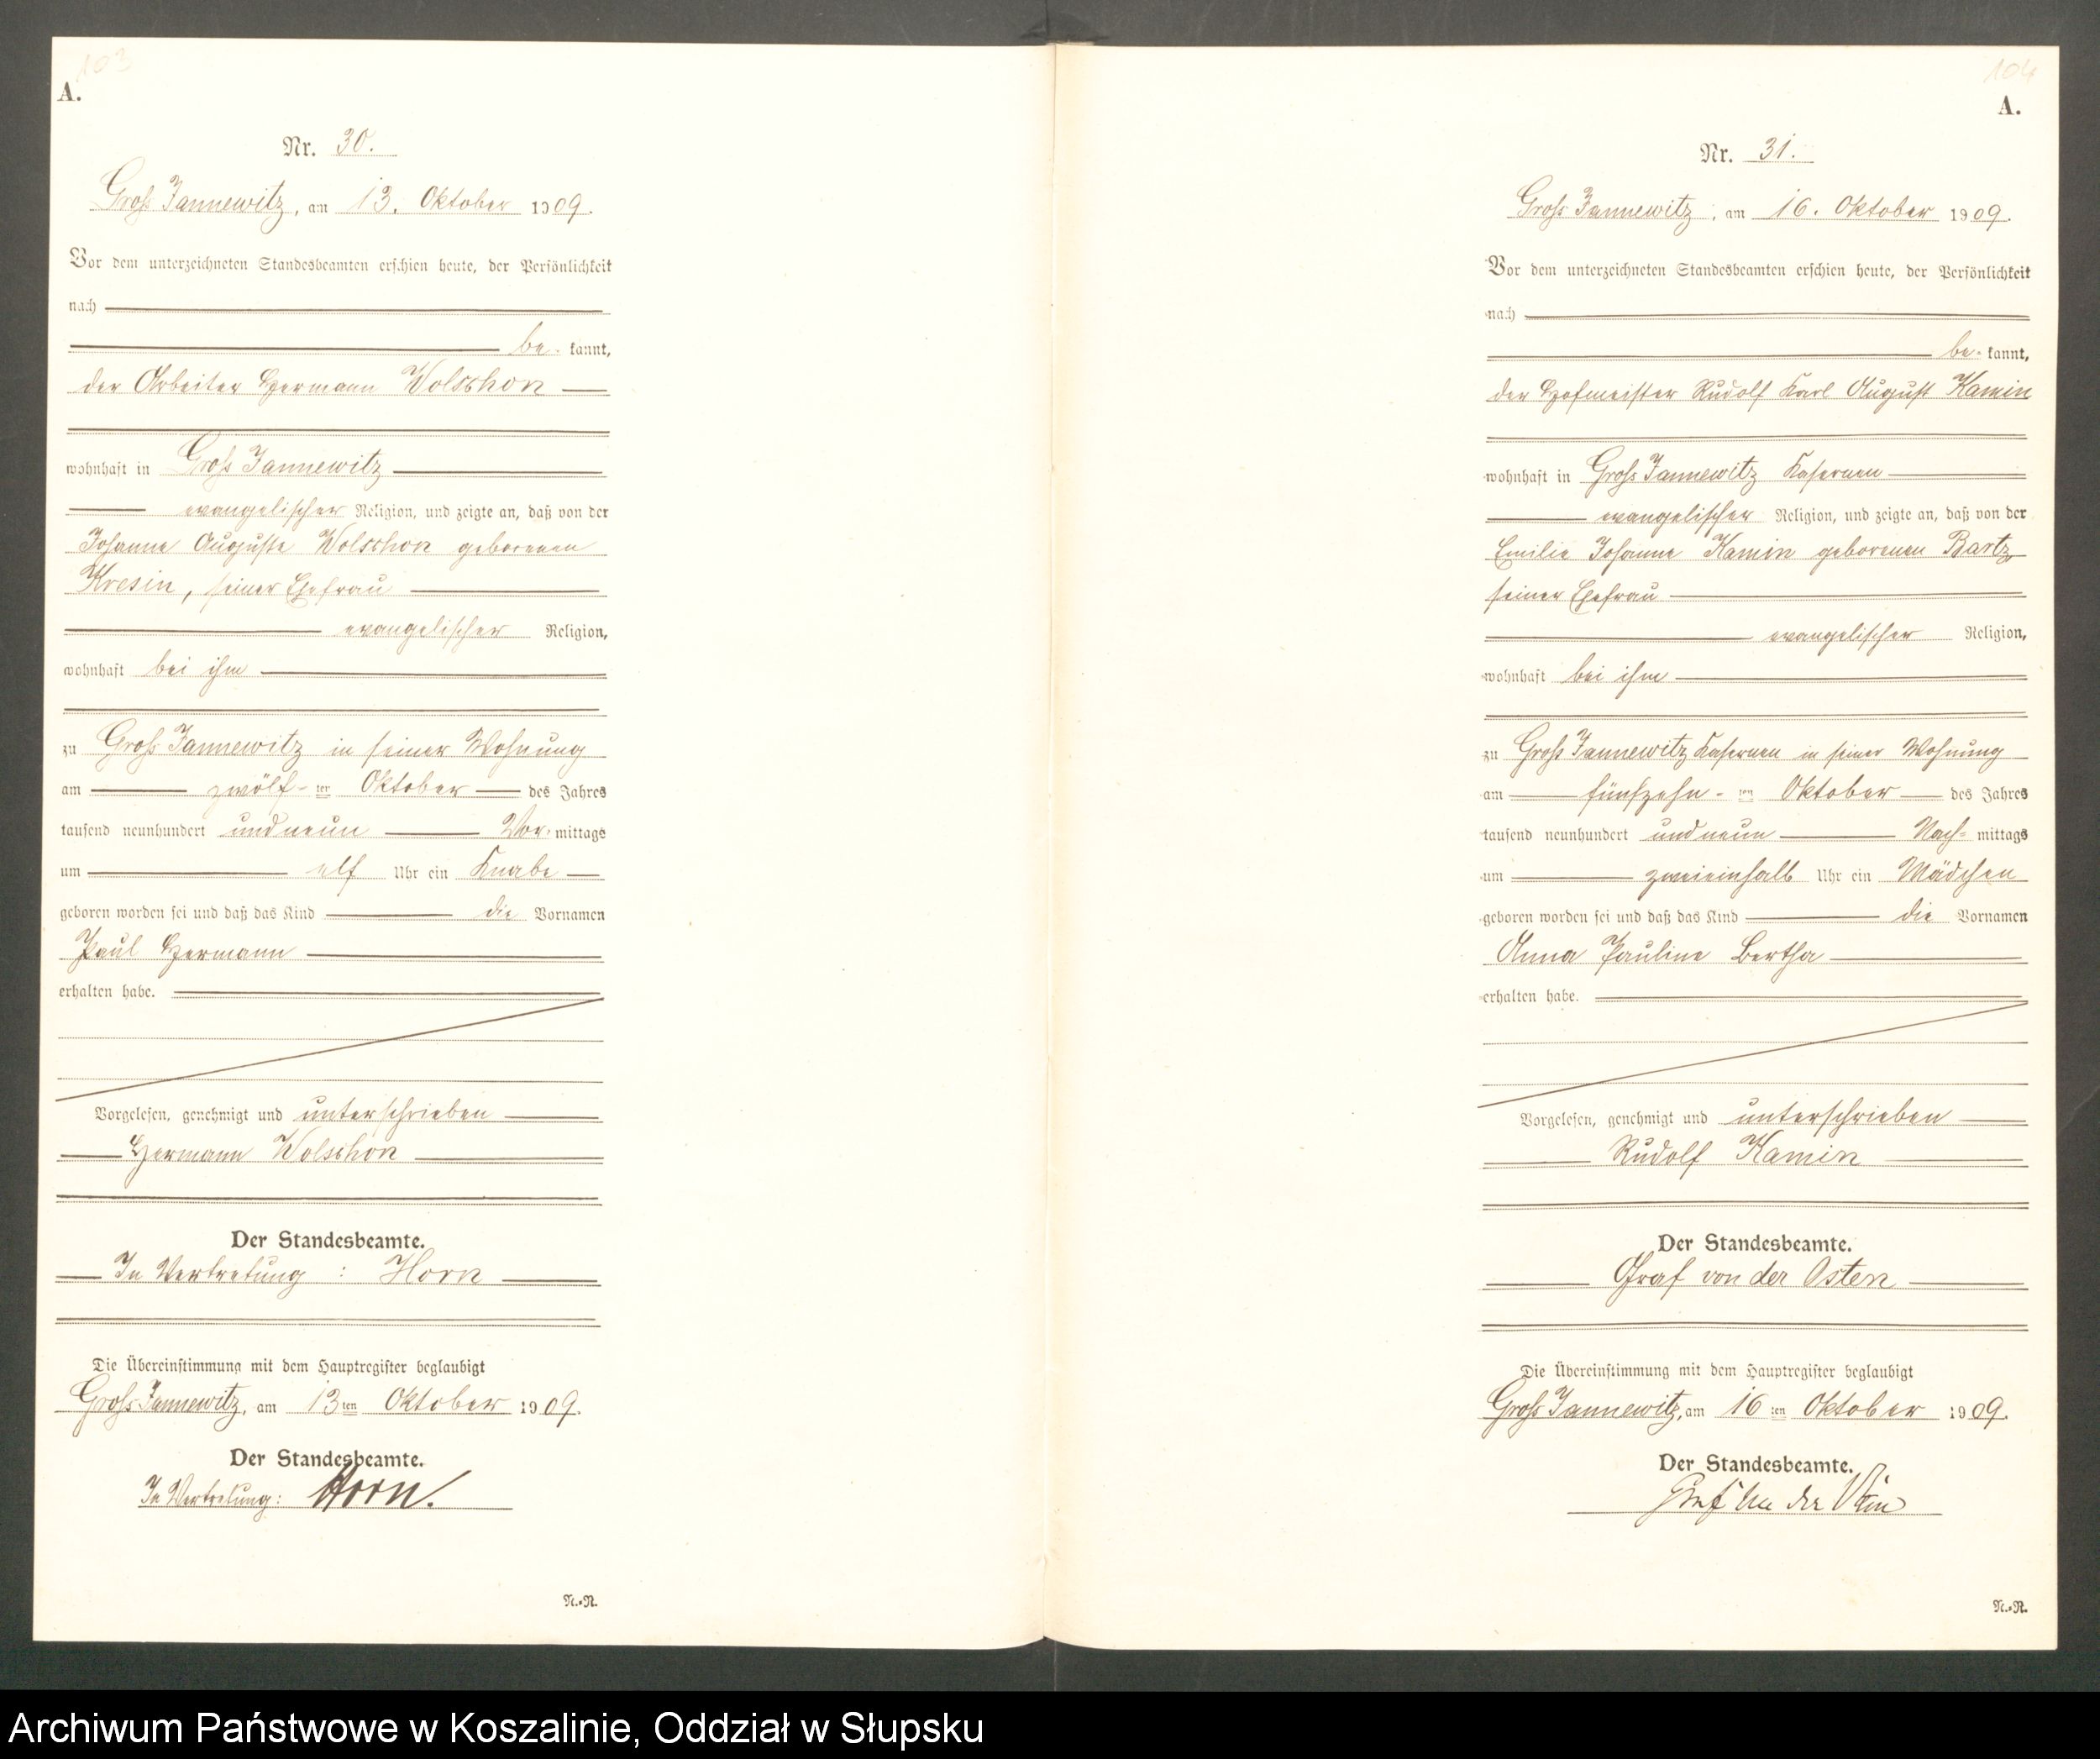 103
A.
Nr. 30.
Groß Jannewitz, am 13. Oktober 1909.
Vor dem unterzeichneten Standesbeamten erschien heute, der Persönlichkeit
nach
be- kannt,
der Arbeiter Hermann Wolschon
wohnhaft in Groß Jannewitz
evangelischer Religion, und zeigte an, daß von der
Johanne Auguste Wolschon geborenen
Kresin, seiner Ehefrau
evangelischer Religion,
wohnhaft bei ihm
zu Groß Jannewitz in seiner Wohnung
am zwölf- ten Oktober des Jahres
tausend neunhundert und neun Vor- mittags
um elf Uhr ein Knabe
geboren worden sei und daß das Kind die Vornamen
Paul Hermann
erhalten habe.
Vorgelesen, genehmigt und unterschrieben
Hermann Wolschon
Der Standesbeamte.
In Vertretung : Horn
Die Übereinstimmung mit dem Hauptregister beglaubigt
Groß Jannewitz, am 13ten Oktober 1909.
Der Standesbeamte.
In Vertretung: Horn.
N.=R.
104
A.
Nr. 31.
Groß Jannewitz, am 16. Oktober 1909.
Vor dem unterzeichneten Standesbeamten erschien heute, der Persönlichkeit
nach
be- kannt,
der Hofmeister Rudolf Karl August Kamin
wohnhaft in Groß Jannewitz Kasernen
evangelischer Religion, und zeigte an, daß von der
Emilie Johanne Kamin geborenen Bartz
seiner Ehefrau
evangelischer Religion,
wohnhaft bei ihm
zu Groß Jannewitz Kasernen in seiner Wohnung
am fünfzehn- ten Oktober des Jahres
tausend neunhundert und neun Nach- mittags
um zweieinhalb Uhr ein Mädchen
geboren worden sei und daß das Kind die Vornamen
Anna Pauline Bertha
erhalten habe.
Vorgelesen, genehmigt und unterschrieben
Rudolf Kamin
Der Standesbeamte.
Graf von der Osten
Die Übereinstimmung mit dem Hauptregister beglaubigt
Groß Jannewitz, am 16ten Oktober 1909.
Der Standesbeamte.
Graf von der Osten
N.=R.
Archiwum Państwowe w Koszalinie, Oddział w Słupsku